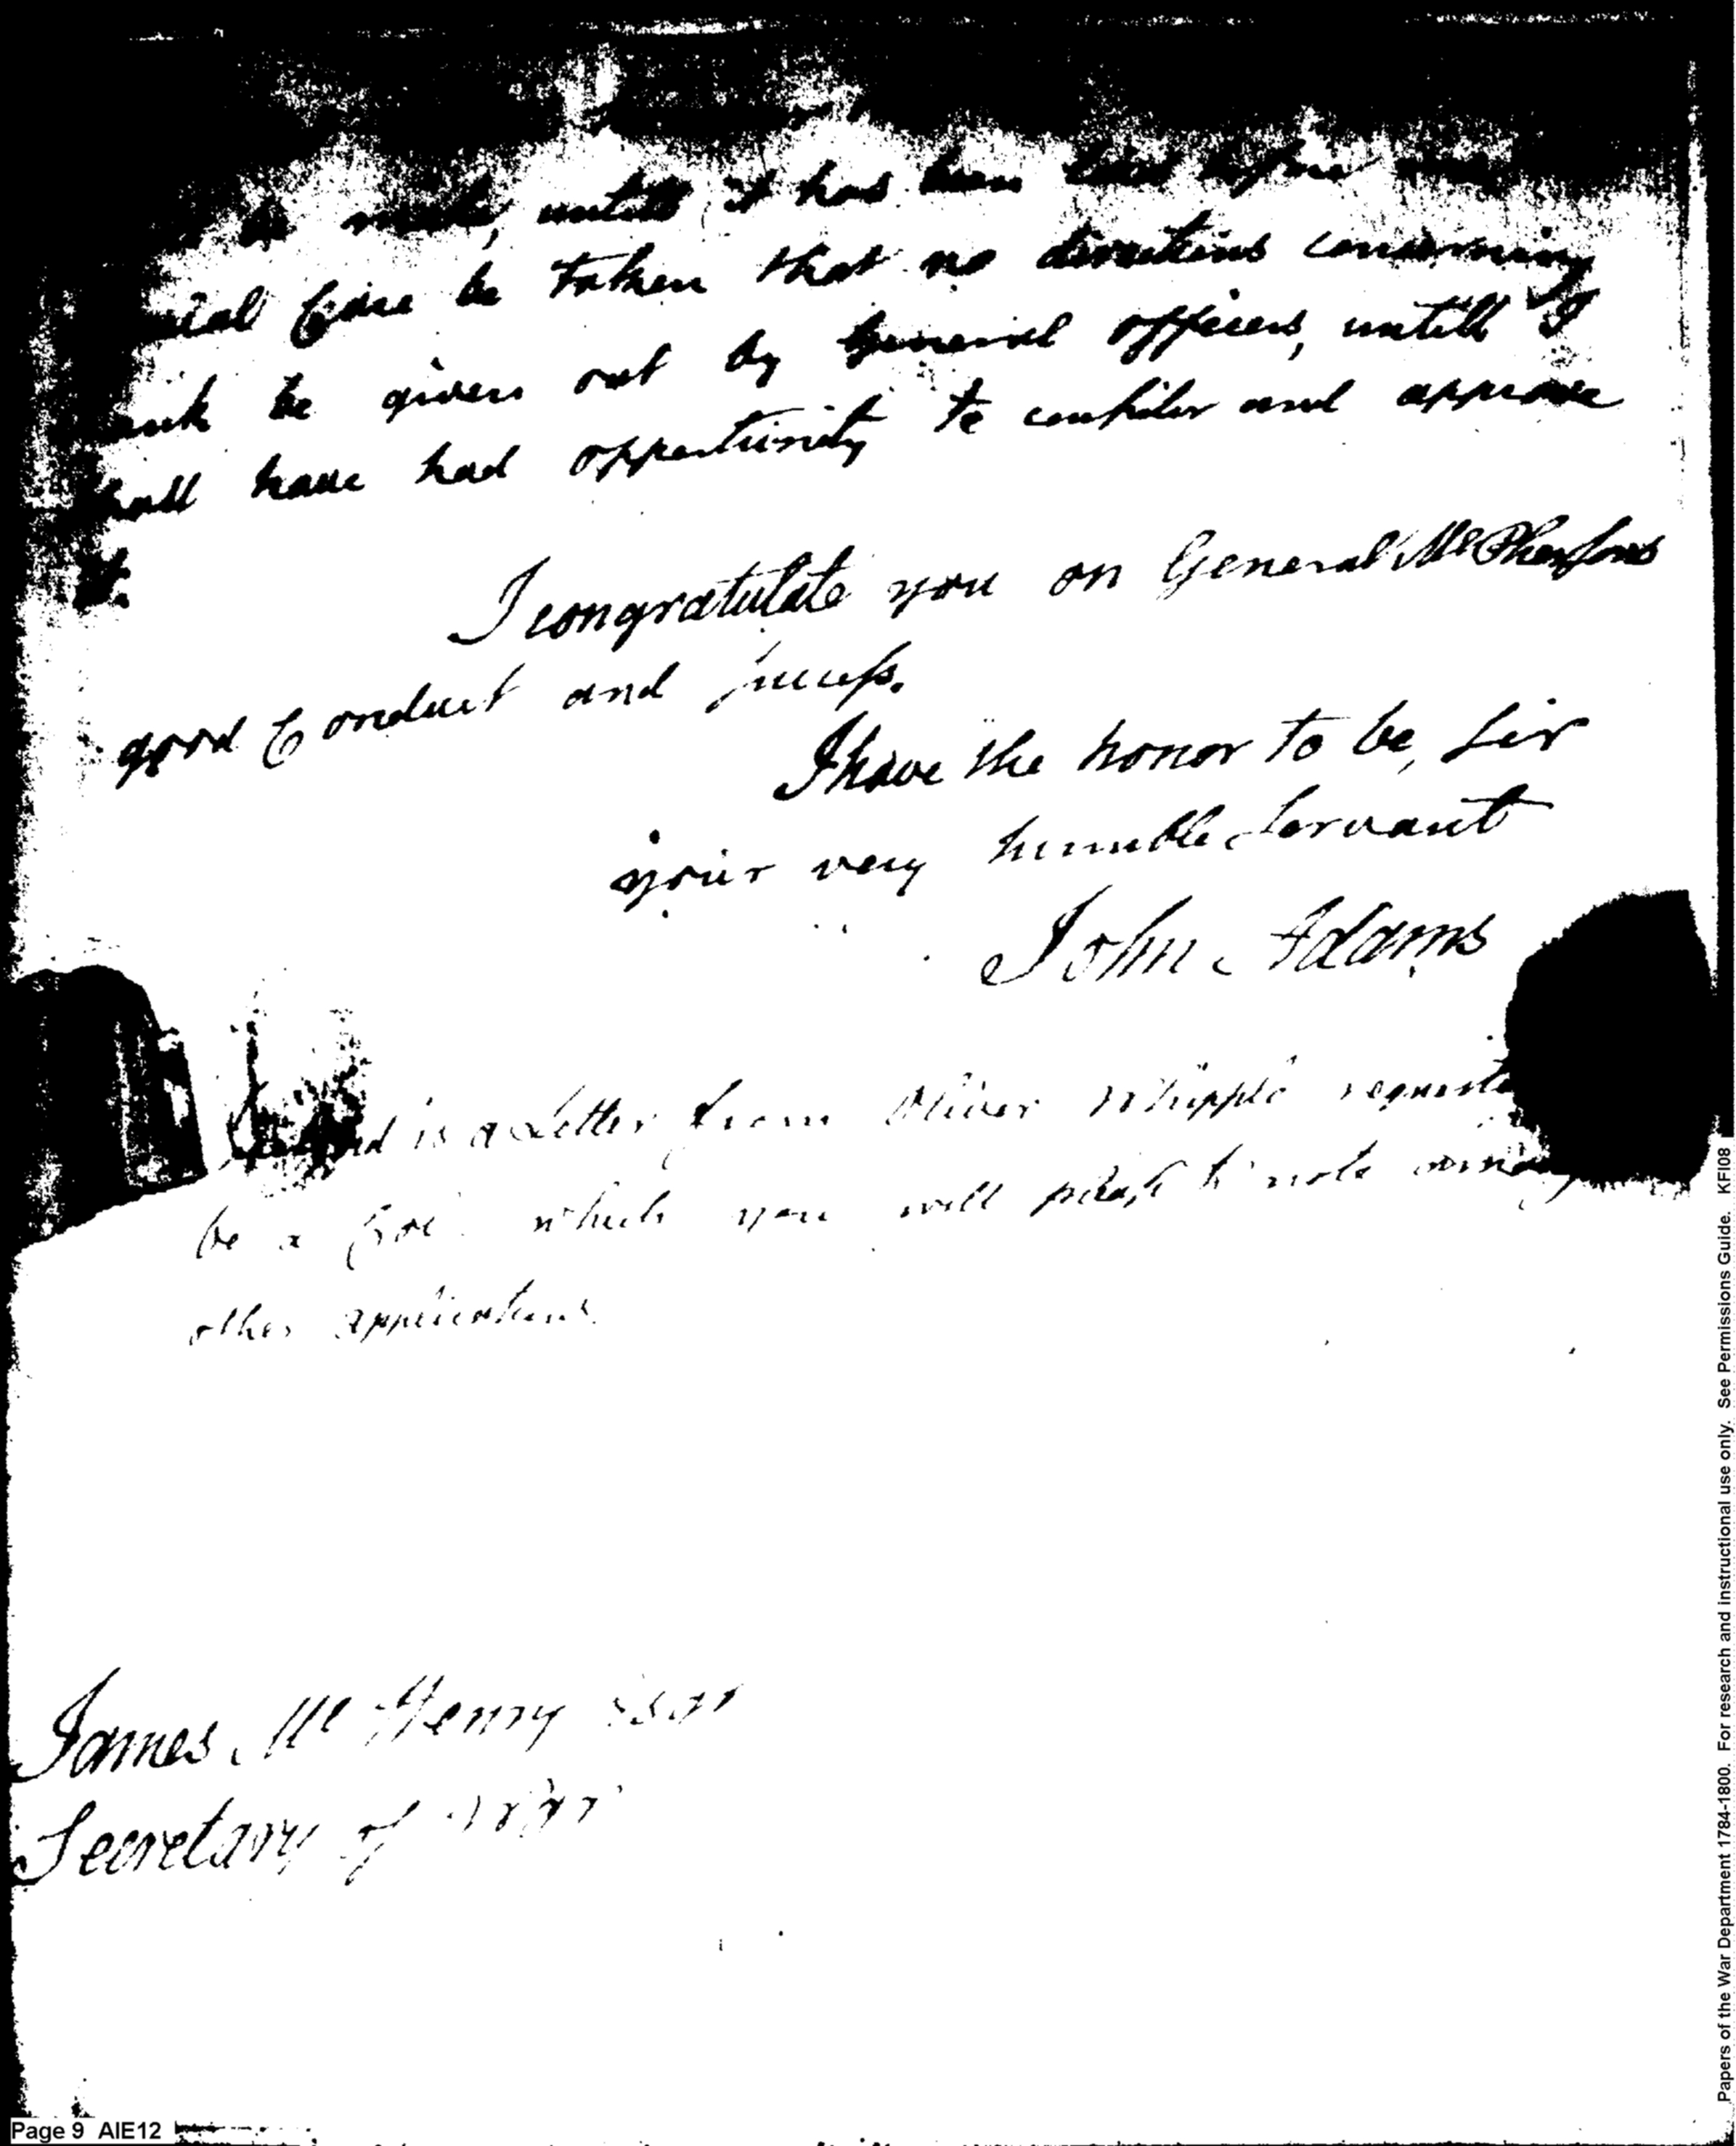 be made, untill it has been laid before me
Care be taken that no directions concerning
rank be given out by General officers, untill I
shall have had opportunity to consider and approve
it.
I congratulate you on General McPhersons
good Conduct and success.
I have the honor to be, Sir
your very humble Servant
John Adams
is a Letter from Oliver Whipple
be a which you will please to note among
other applications.
James McHenry Esqr
Secretary of War
Page 9 AIE12
Papers of the War Department 1784-1800. For research and instructional use only. See Permissions Guide. KFI08